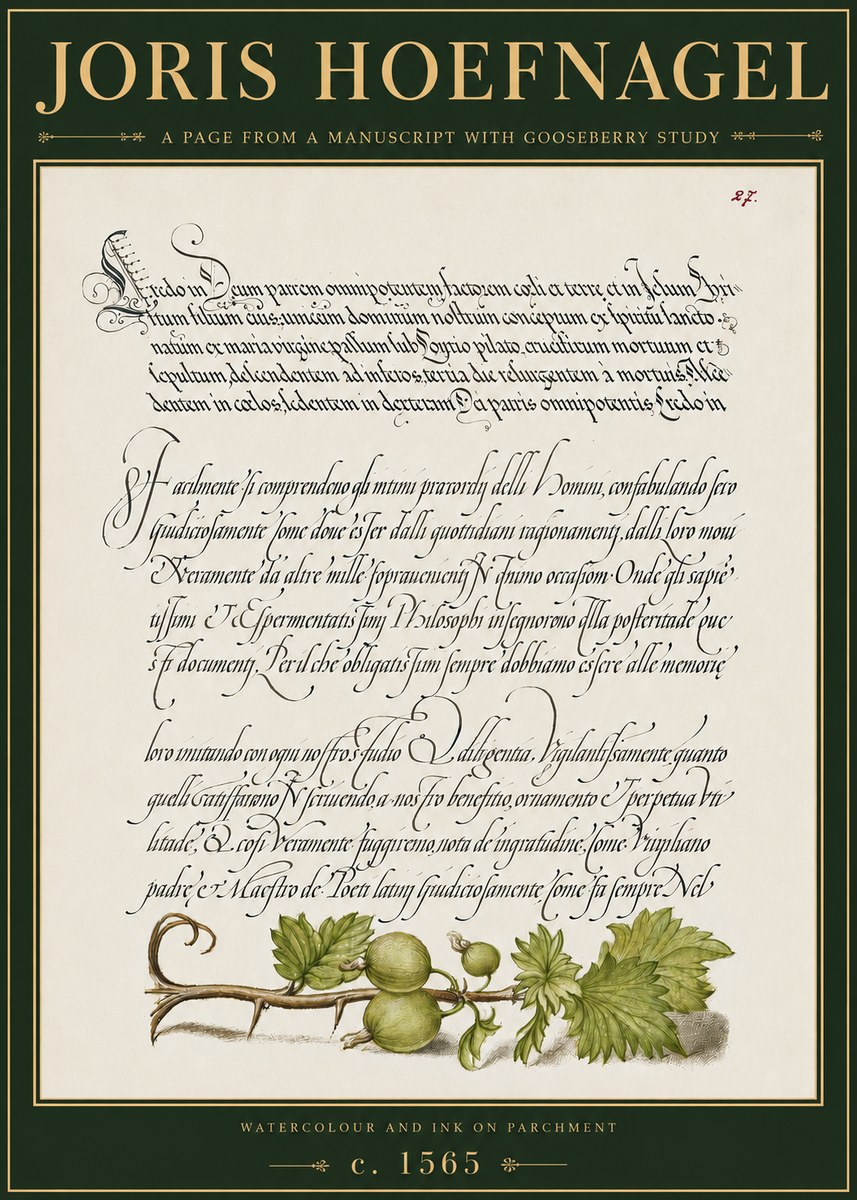 JORIS HOEFNAGEL
A PAGE FROM A MANUSCRIPT WITH GOOSEBERRY STUDY
27.
Credo in Deum patrem omnipotentem factorem cœli et terre et in Jesum Chri
stum filium eius unicum dominum nostrum conceptum ex spiritu sancto
natum ex maria virgine passum sub Pontio pilato, crucifixum mortuum et
sepultum, descendentem ad inferos, tertia die resurgentem à mortuis, Asce
dentem in cœlos, sedentem in dexteram Dei patris omnipotentis Credo in
Facilmente si comprendeno gli intimi præcordij delli Homini, confabulando seco
Giudiciosamente Come doue esser dalli quottidiani ragionamentj, dalli loro moui
Veramente da altre mille soprauenientj IN Animo occasiom. Onde gli sapiē
tissimi & Espermentatissimj Philosophi insegnoreno alla posteritade que
sti documentj. Per il che obligatissimj sempre dobbiamo essere alle memorie
loro imitando con ogni nostro studio & diligentia, Vigilantissamente quanto
quelli satisffarono IN scriuendo, a nostro benefitio, ornamento & perpetua Vti
litade, & cosi Veramente fuggiremo, nota de ingratudine, Come Virgiliano
padre, & Maestro de Poeti latinj Giudiciosamente Come fa sempre Nel
WATERCOLOUR AND INK ON PARCHMENT
c. 1565